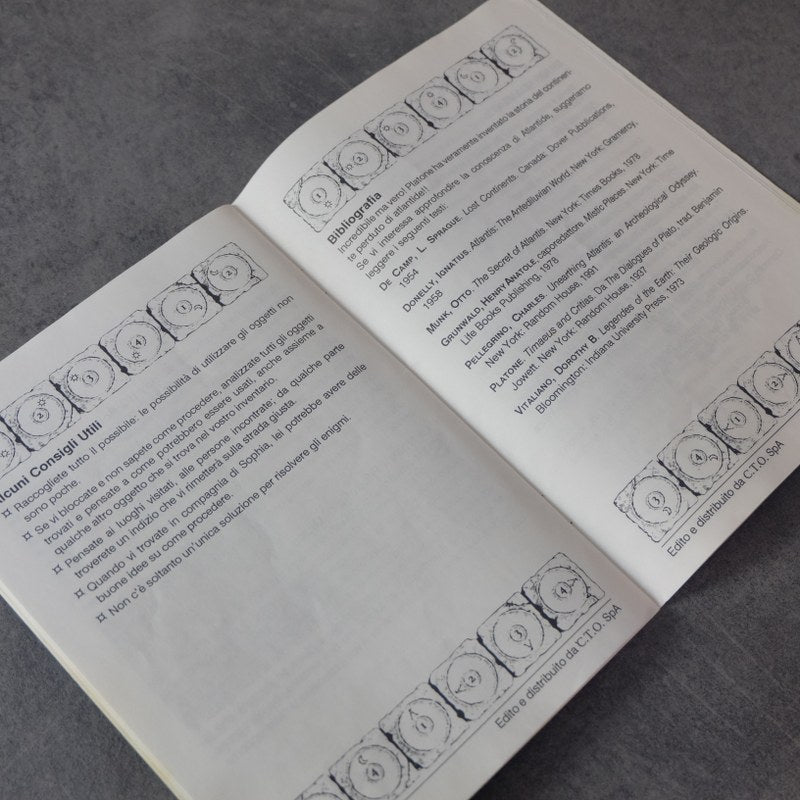 lcuni Consigli Utili
¤ Raccogliete tutto il possibile: le possibilità di utilizzare gli oggetti non
sono poche.
¤ Se vi bloccate e non sapete come procedere, analizzate tutti gli oggetti
trovati e pensate a come potrebbero essere usati, anche assieme a
qualche altro oggetto che si trova nel vostro inventario.
¤ Pensate ai luoghi visitati, alle persone incontrate: da qualche parte
troverete un indizio che vi rimetterà sulla strada giusta.
¤ Quando vi trovate in compagnia di Sophia, lei potrebbe avere delle
buone idee su come procedere.
¤ Non c'è soltanto un'unica soluzione per risolvere gli enigmi.
Edito e distribuito da C.T.O. SpA
Bibliografia
Incredibile ma vero! Platone ha veramente inventato la storia del continen-
te perduto di atlantide!!
Se vi interessa approfondire la conoscenza di Atlantide, suggeriamo
leggere i seguenti testi:
DE CAMP, L. SPRAGUE. Lost Continents. Canada: Dover Pubblications,
1954
DONELLY, IGNATIUS. Atlantis: The Antediluvian World. New York: Gramercy,
1958
MUNK, OTTO. The Secret of Atlantis. New York: Times Books, 1978
GRUNWALD, HENRY ANATOLE caporedattore. Mistic Places. New York: Time
Life Books Publishing, 1978
PELLEGRINO, CHARLES. Unearthing Atlantis: an Archeological Odyssey.
New York: Random House, 1991
PLATONE. Timaeus and Critias. Da The Dialogues of Plato, trad. Benjamin
Jowett. New York: Random House, 1937
VITALIANO, DOROTHY B. Legendes of the Earth: Their Geologic Origins.
Bloomington: Indiana University Press, 1973
Edito e distribuito da C.T.O. SpA